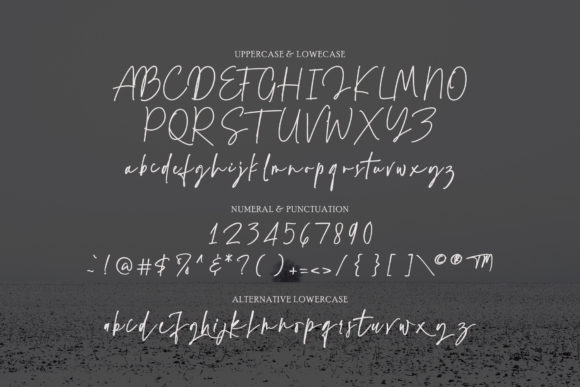 UPPERCASE & LOWECASE
ABCDEFGHIJKLMNO
PQRSTUVWXYZ
abcdefghijklmnopqrstuvwxyz
NUMERAL & PUNCTUATION
1234567890
~`!@#$%^&*?()+=<>/{}[]\©®™
ALTERNATIVE LOWERCASE
abcdefghijklmnopqrstuvwxyz